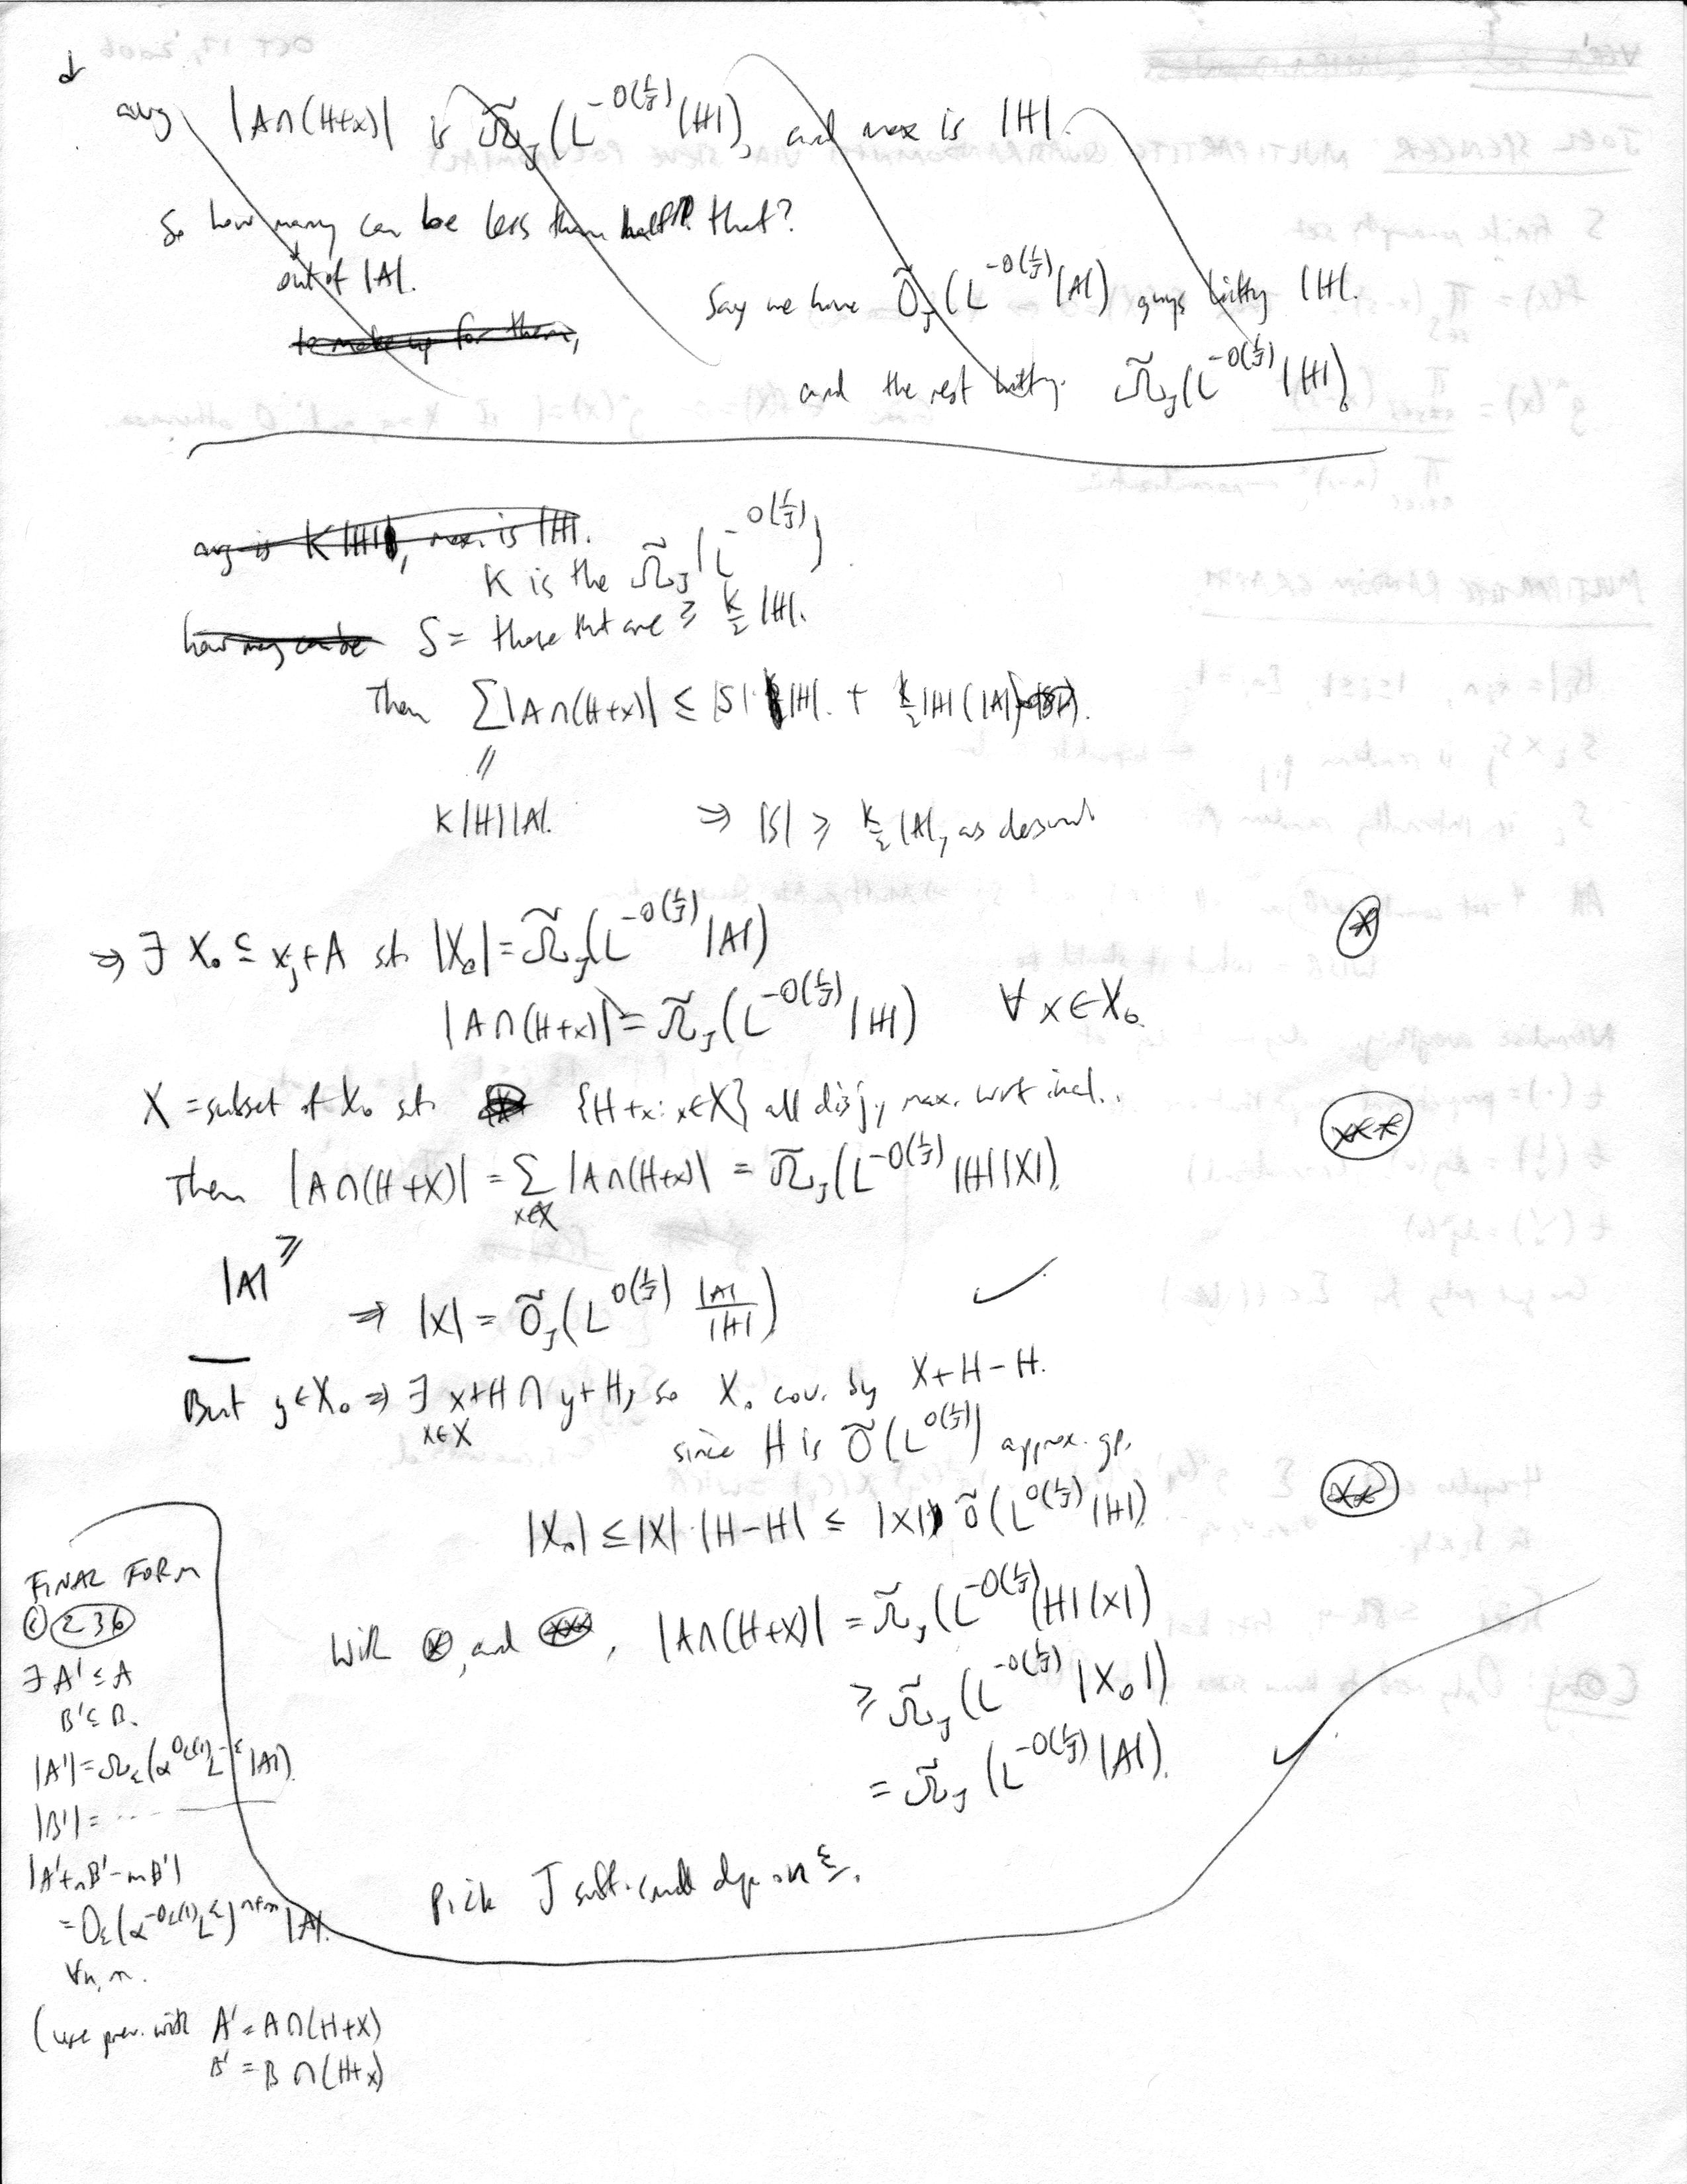 ↓
avg |A∩(H+x)| is Ω̃_J(L^{-O(1/J)}|H|), and max is |H|.
So how many can be less than half that?
out of |A|.
to make up for them,
Say we have Õ_J(L^{-O(1/J)}|A|) guys hitting |H|.
and the rest hitting Ω̃_J(L^{-O(1/J)}|H|).
avg is K|H|, max is |H|.
K is the Ω̃_J(L^{-O(1/J)}).
how many can be S = those that are ≥ K/2 |H|.
Then Σ|A∩(H+x)| ≤ |S|·|H|. + K/2 |H|(|A|-|S|).
=
K|H||A|. ⇒ |S| ≥ K/2 |A|, as desired
⇒ ∃ X₀ ⊆ x_j+A st. |X₀| = Ω̃_J(L^{-O(1/J)}|A|) (*)
|A∩(H+x)| = Ω̃_J(L^{-O(1/J)}|H|) ∀ x∈X₀.
X = subset of X₀ st. {H+x: x∈X} all disj., max. wrt incl.. (***)
Then |A∩(H+X)| = Σ_{x∈X} |A∩(H+x)| = Ω̃_J(L^{-O(1/J)}|H||X|).
|A| ≥
⇒ |X| = Õ_J(L^{O(1/J)} |A|/|H|) ✓
But y∈X₀ ⇒ ∃_{x∈X} x+H ∩ y+H, so X₀ cov. by X+H-H.
since H is Õ(L^{O(1/J)}) approx. gp.
|X₀| ≤ |X|·|H-H| ≤ |X| Õ(L^{O(1/J)}|H|) (**)
With (*), and (***), |A∩(H+X)| = Ω̃_J(L^{-O(1/J)}|H||X|)
≥ Ω̃_J(L^{-O(1/J)}|X₀|)
= Ω̃_J(L^{-O(1/J)}|A|). ✓
Pick J suff. dep on ε.
FINAL FORM
(2.36)
∃ A' ⊆ A
B' ⊆ B.
|A'| = Ω_ε(α^{O_ε(1)} L^{-ε} |A|).
|B'| = ...
|A'+nB'-mB'|
= O_ε(α^{-O_ε(1)} L^ε)^{n+m} |A|.
∀n, m.
(use prev. with A' = A∩(H+X)
B' = B∩(H+x)